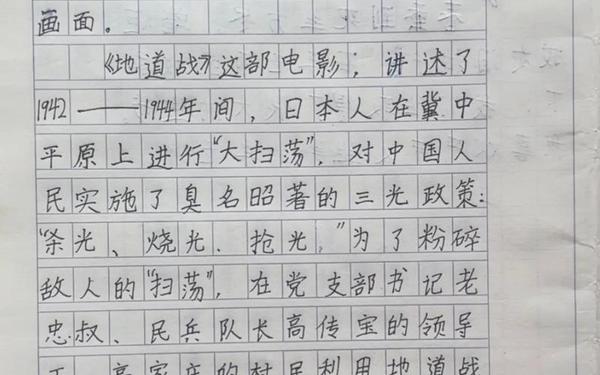 画面。
《地道战》这部电影，讲述了
1942——1944年间，日本人在冀中
平原上进行“大扫荡”，对中国人
民实施了臭名昭著的三光政策：
“杀光、烧光、抢光，”为了粉碎
敌人的“扫荡”，在党支部书记老
忠叔、民兵队长高传宝的领导
下，高家庄的村民利用地道战